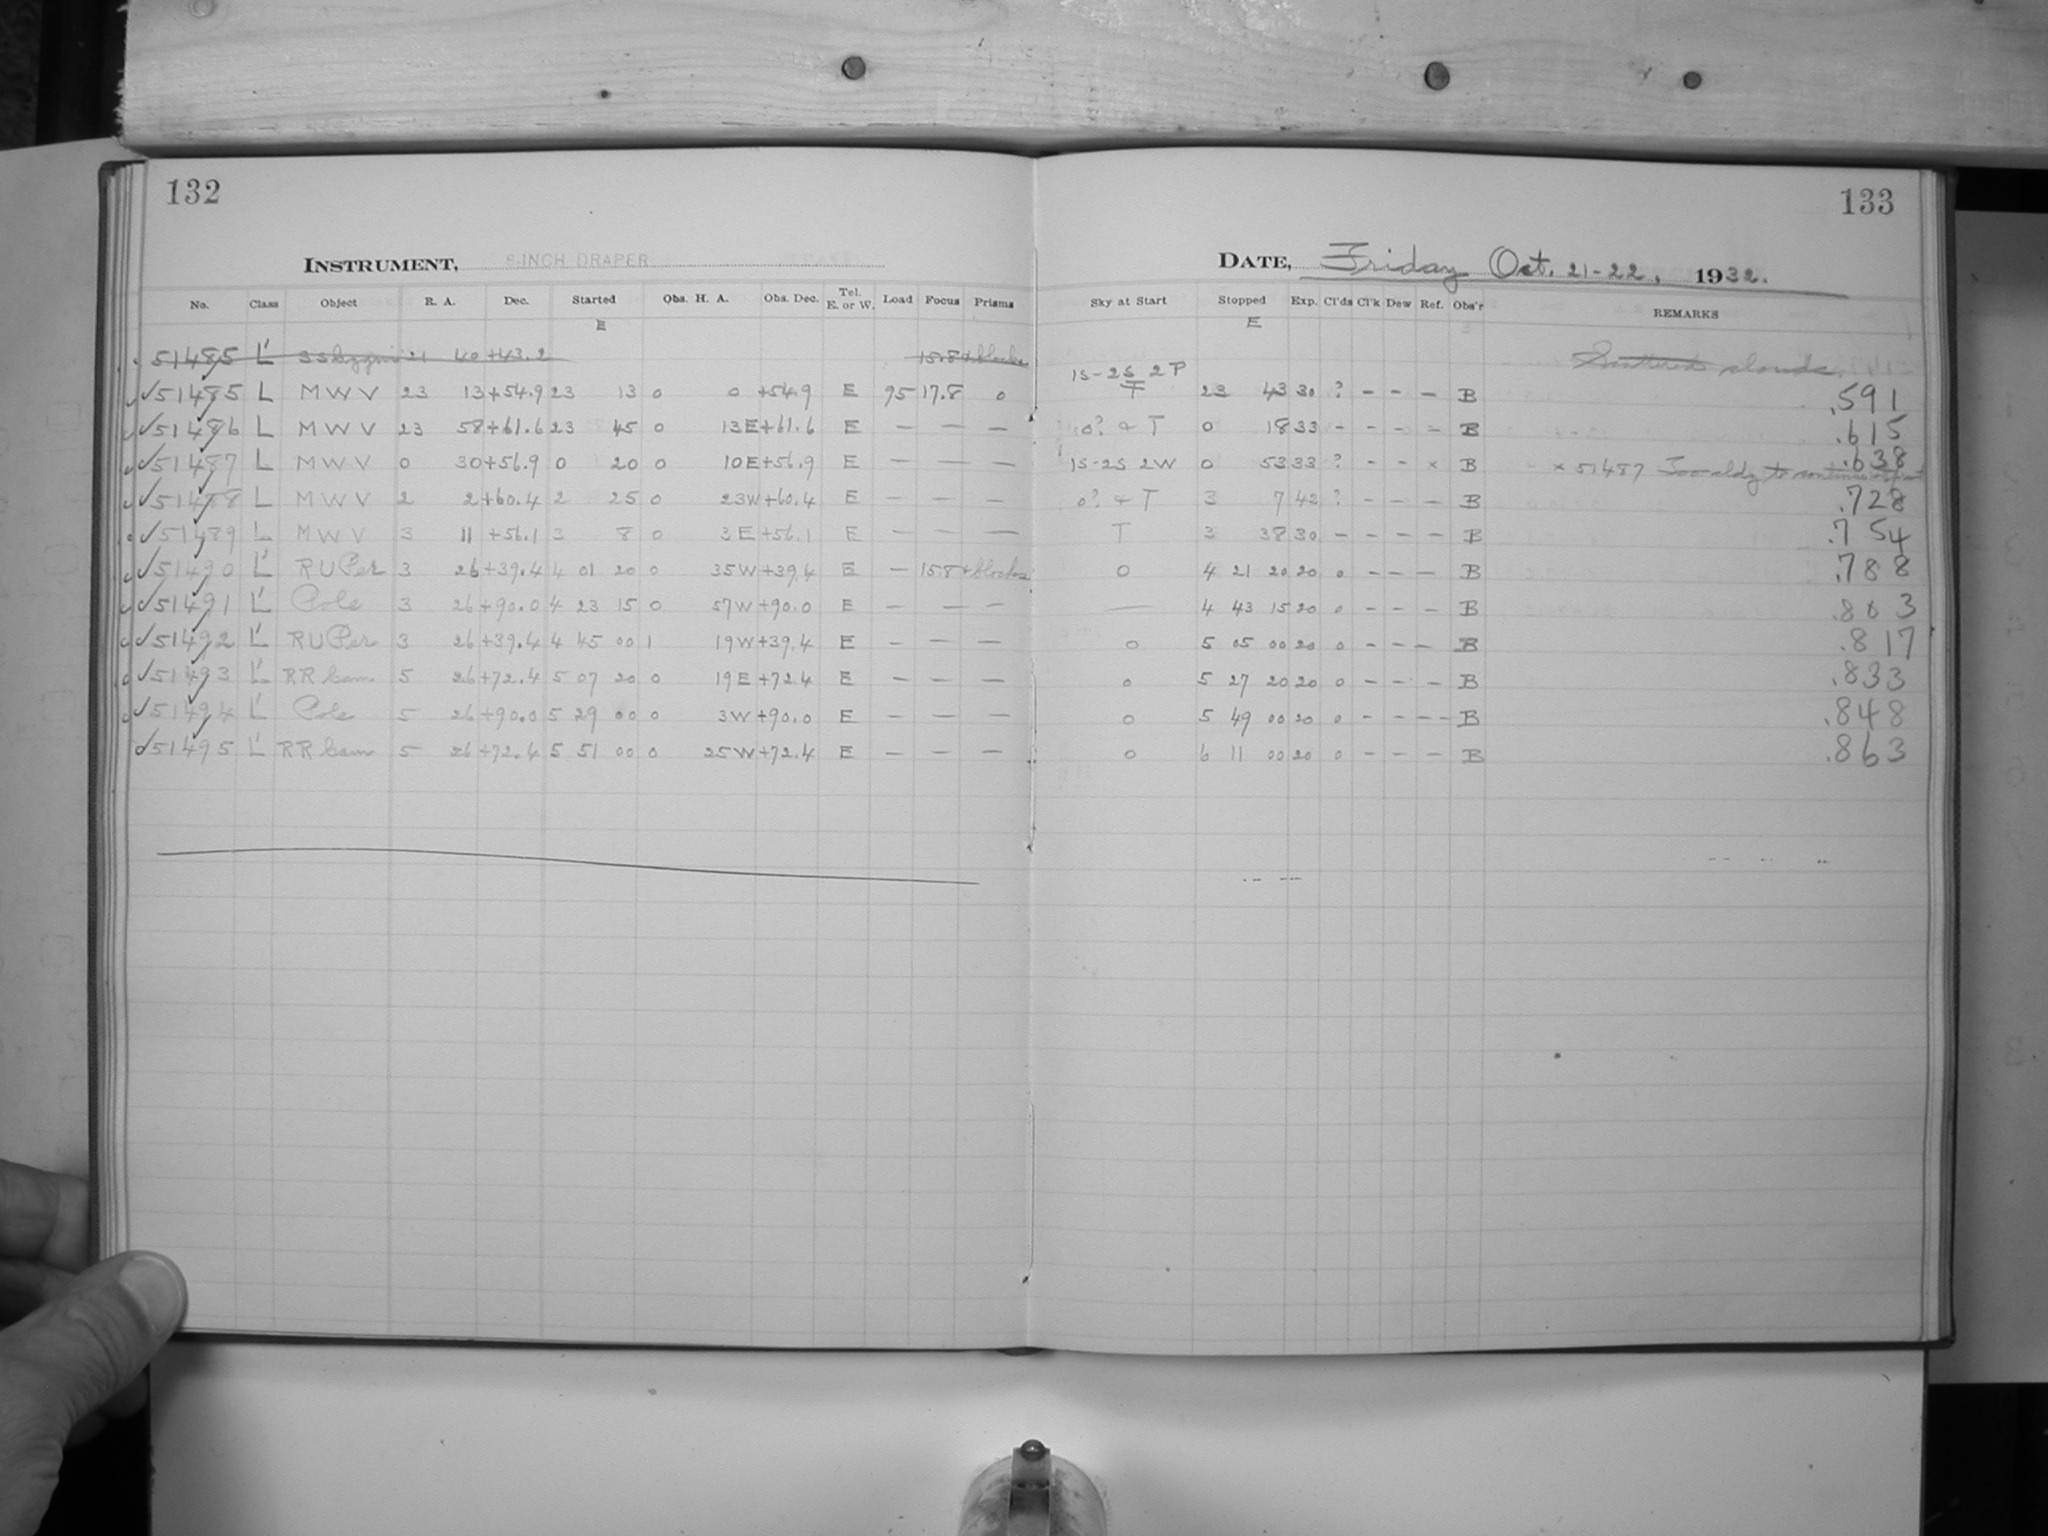 132
133
INSTRUMENT, 8-INCH DRAPER
DATE, Friday Oct. 21-22, 1932.
No. Class Object R. A. Dec. Started Obs. H. A. Obs. Dec. Tel. E. or W. Load Focus Prisms Sky at Start Stopped Exp. Cl'ds Cl'k Dew Ref. Obs'r REMARKS
E E
51485 L' SS Cygni 21 40 +43.2 15.8 + blocks Scattered clouds.
✓51485 L MWV 23 13 +54.9 23 13 0 0 +54.9 E 95 17.8 0 1S-2S 2P T 23 43 30 ? - - - B .591
✓51486 L MWV 23 58 +61.6 23 45 0 13E +61.6 E — — — 0? & T 0 18 33 - - - = B .615
✓51487 L MWV 0 30 +56.9 0 20 0 10E +56.9 E — — — 1S-2S 2W 0 53 33 ? - - x B x 51487 Too cldy to continue .638
✓51488 L MWV 2 2 +60.4 2 25 0 23W +60.4 E — — — 0? & T 3 7 42 ? - - - B .728
✓51489 L MWV 3 11 +56.1 3 8 0 3E +56.1 E — — — T 3 38 30 - - - - B .754
✓51490 L' RU Per 3 26 +39.4 4 01 20 0 35W +39.4 E — 15.8 + blocks 0 4 21 20 20 0 - - - B .788
✓51491 L' Pole 3 26 +90.0 4 23 15 0 57W +90.0 E — — — — 4 43 15 20 0 - - - B .803
✓51492 L' RU Per 3 26 +39.4 4 45 00 1 19W +39.4 E — — — 0 5 05 00 20 0 - - - B .817
✓51493 L' RR Cam 5 26 +72.4 5 07 20 0 19E +72.4 E — — — 0 5 27 20 20 0 - - - B .833
✓51494 L' Pole 5 26 +90.0 5 29 00 0 3W +90.0 E — — — 0 5 49 00 20 0 - - - - B .848
✓51495 L' RR Cam 5 26 +72.4 5 51 00 0 25W +72.4 E — — — 0 6 11 00 20 0 - - - B .863